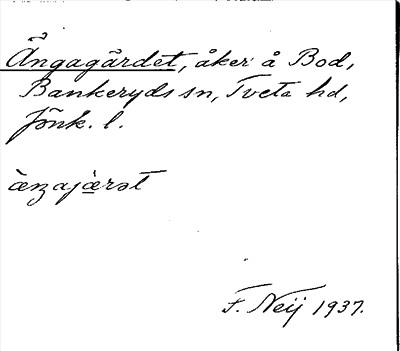 Ängagärdet, åker å Bod,
Bankeryds sn, Tveta hd,
Jönk. l.
F. Neij 1937.